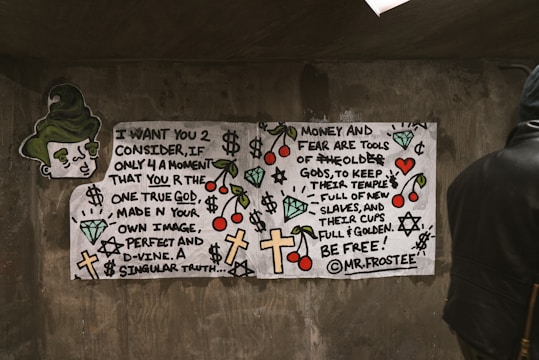 I WANT YOU 2
CONSIDER, IF
ONLY 4 A MOMENT
THAT YOU R THE
ONE TRUE GOD,
MADE N YOUR
OWN IMAGE,
PERFECT AND
D-VINE. A
SINGULAR TRUTH...
MONEY AND
FEAR ARE TOOLS
OF THE OLDER
GODS, TO KEEP
THEIR TEMPLE$
FULL OF NEW
SLAVES, AND
THEIR CUPS
FULL & GOLDEN.
BE FREE!
©MR.FROSTEE